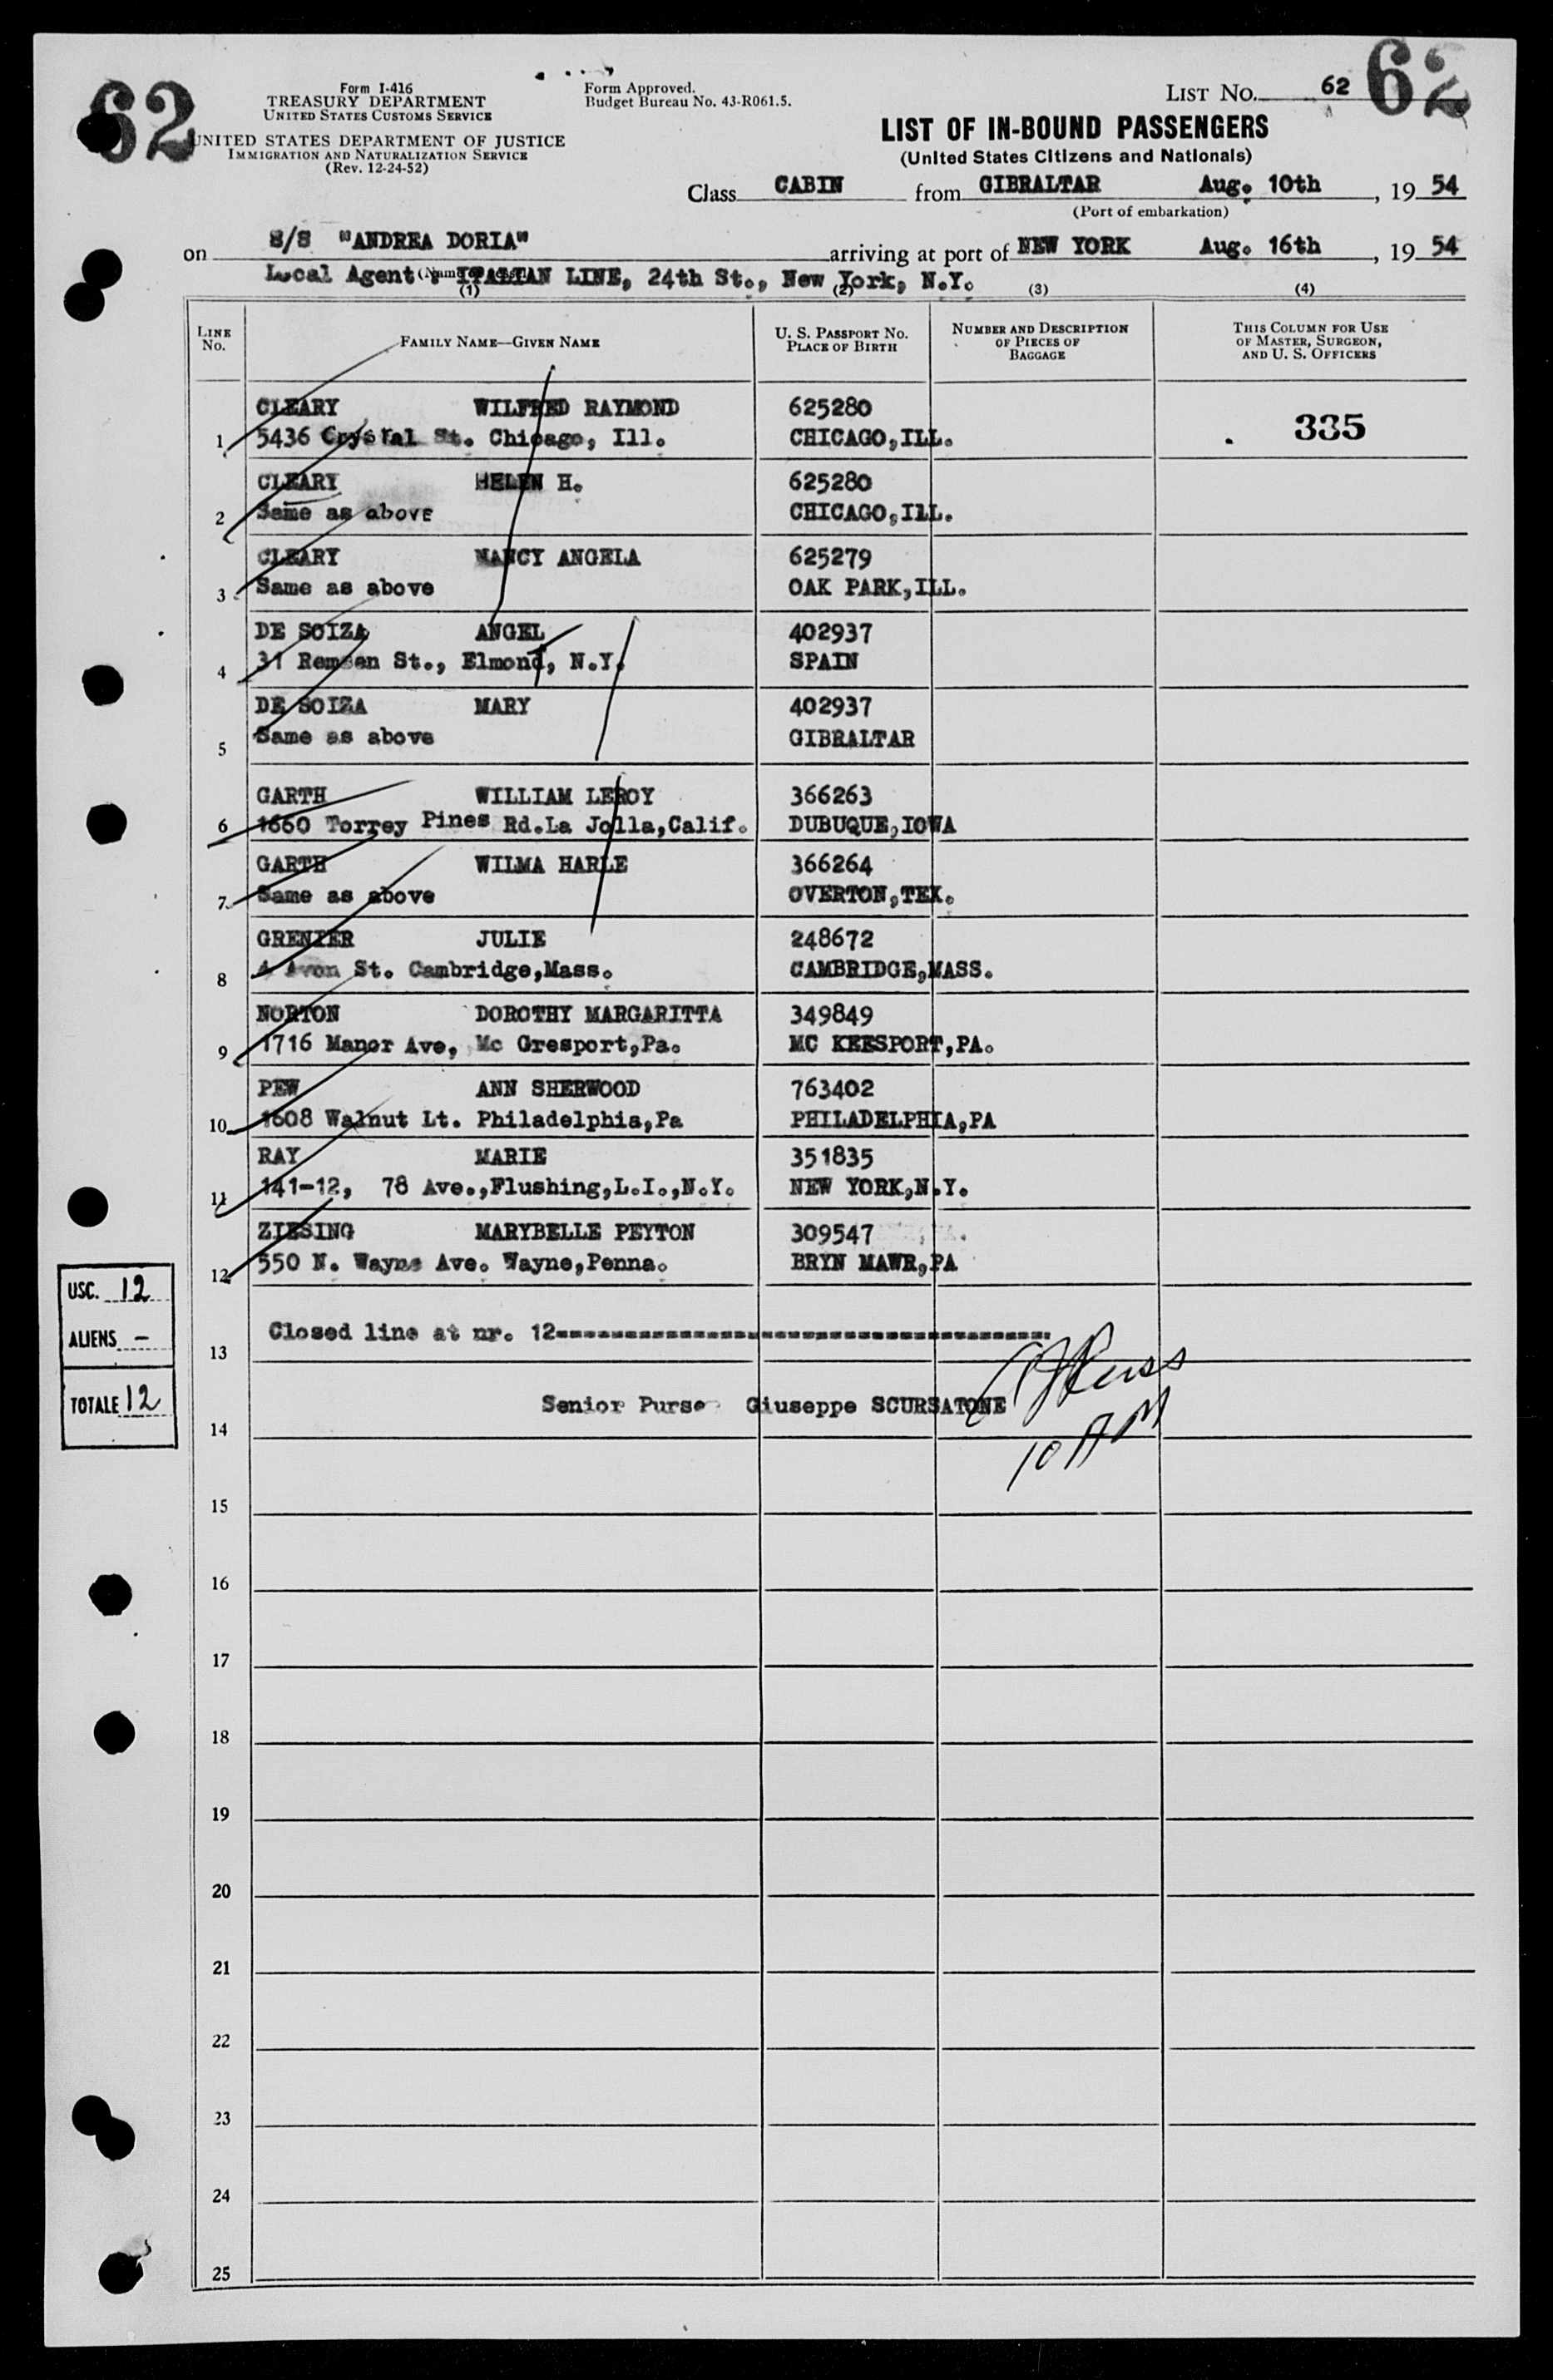 62
62
Form I-416
TREASURY DEPARTMENT
UNITED STATES CUSTOMS SERVICE
UNITED STATES DEPARTMENT OF JUSTICE
IMMIGRATION AND NATURALIZATION SERVICE
(Rev. 12-24-52)
Form Approved.
Budget Bureau No. 43-R061.5.
LIST No. 62
LIST OF IN-BOUND PASSENGERS
(United States Citizens and Nationals)
Class CABIN from GIBRALTAR Aug. 10th, 19 54
(Port of embarkation)
on S/S "ANDREA DORIA" arriving at port of NEW YORK Aug. 16th, 19 54
Local Agent : ITALIAN LINE, 24th St., New York, N.Y.
(1) (2) (3) (4)
LINE No. FAMILY NAME—GIVEN NAME U. S. PASSPORT NO. PLACE OF BIRTH NUMBER AND DESCRIPTION OF PIECES OF BAGGAGE THIS COLUMN FOR USE OF MASTER, SURGEON, AND U. S. OFFICERS
CLEARY WILFRED RAYMOND 625280
1 5436 Crystal St. Chicago, Ill. CHICAGO,ILL. 335
CLEARY HELEN H. 625280
2 Same as above CHICAGO,ILL.
CLEARY NANCY ANGELA 625279
3 Same as above OAK PARK,ILL.
DE SOIZA ANGEL 402937
4 31 Remsen St., Elmond, N.Y. SPAIN
DE SOIZA MARY 402937
5 Same as above GIBRALTAR
GARTH WILLIAM LEROY 366263
6 1660 Torrey Pines Rd.La Jolla,Calif. DUBUQUE,IOWA
GARTH WILMA HARLE 366264
7 Same as above OVERTON,TEX.
GRENIER JULIE 248672
8 4 Avon St. Cambridge,Mass. CAMBRIDGE,MASS.
NORTON DOROTHY MARGARITTA 349849
9 1716 Manor Ave, Mc Gresport,Pa. MC KEESPORT,PA.
PEW ANN SHERWOOD 763402
10 1608 Walnut Lt. Philadelphia,Pa PHILADELPHIA,PA
RAY MARIE 351835
11 141-12, 78 Ave.,Flushing,L.I.,N.Y. NEW YORK,N.Y.
ZIESING MARYBELLE PEYTON 309547
12 550 N. Wayne Ave. Wayne,Penna. BRYN MAWR,PA
USC. 12
ALIENS -
TOTALE 12
13 Closed line at nr. 12
14 Senior Purse Giuseppe SCURSATONE
10 AM
15
16
17
18
19
20
21
22
23
24
25